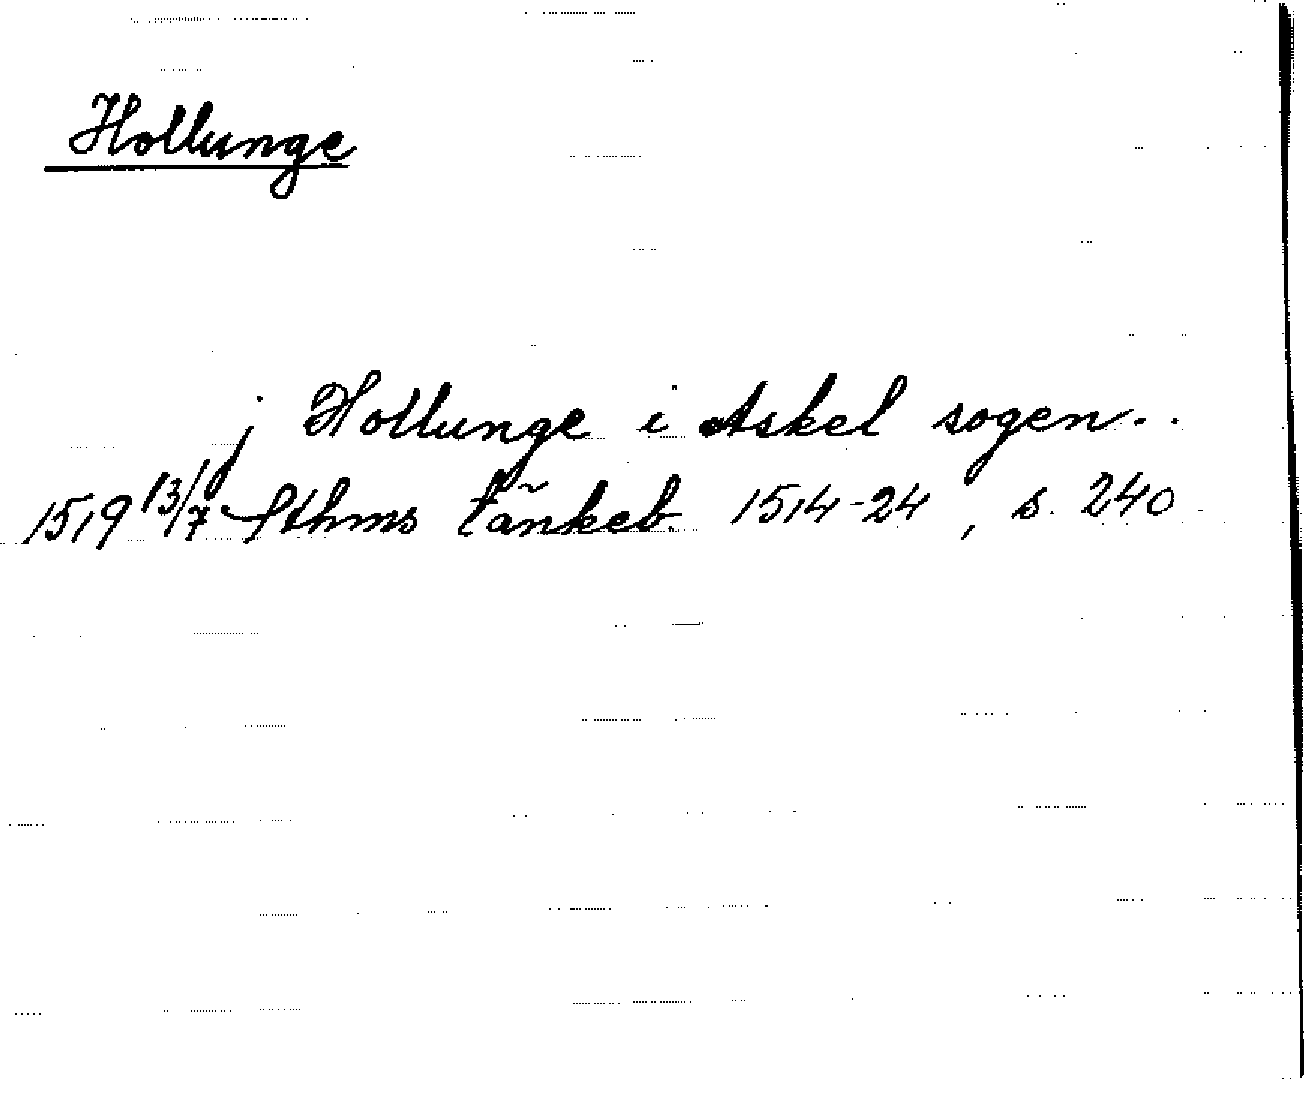 Hollunge
j Hollunge i Askel sogen..
1519 13/7 Sthms tänkeb. 1514-24, s. 240